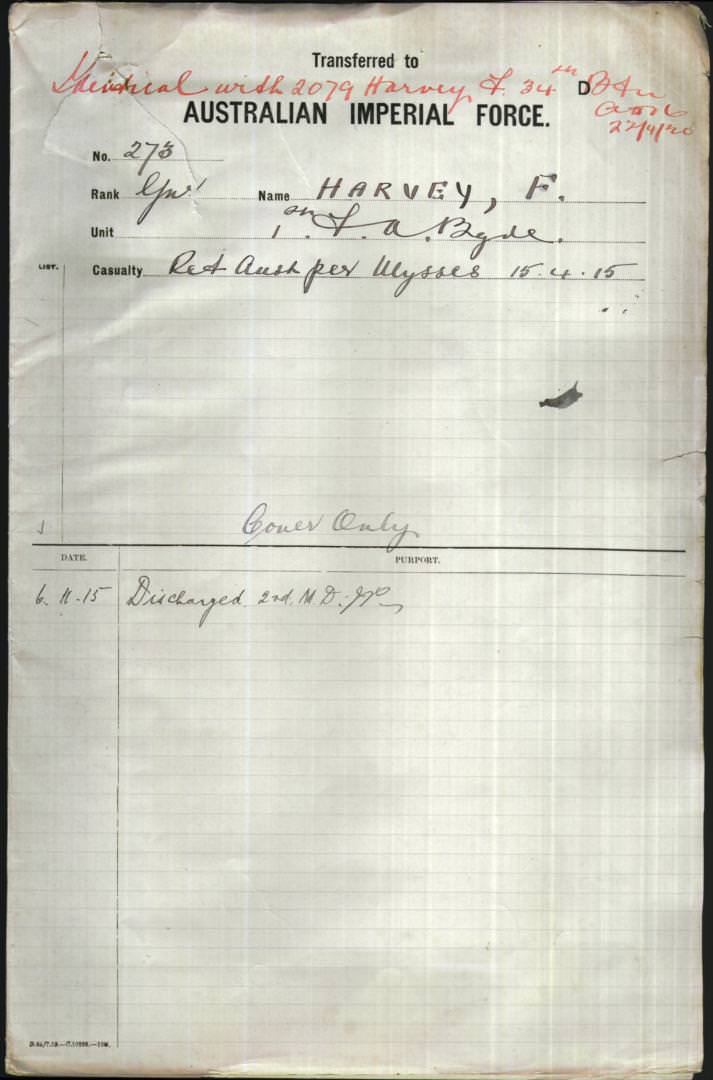 Transferred to
Identical with 2079 Harvey, F. 34th Btn
D
22/9/20
AUSTRALIAN IMPERIAL FORCE.
No. 273
Rank Gnr Name HARVEY, F.
Unit 1st F. A. Bgde.
LIST.
Casualty Ret Aust per Ulysses 15.4.15
Cover Only
DATE. PURPORT.
6.11.15 Discharged 2nd. M.D.